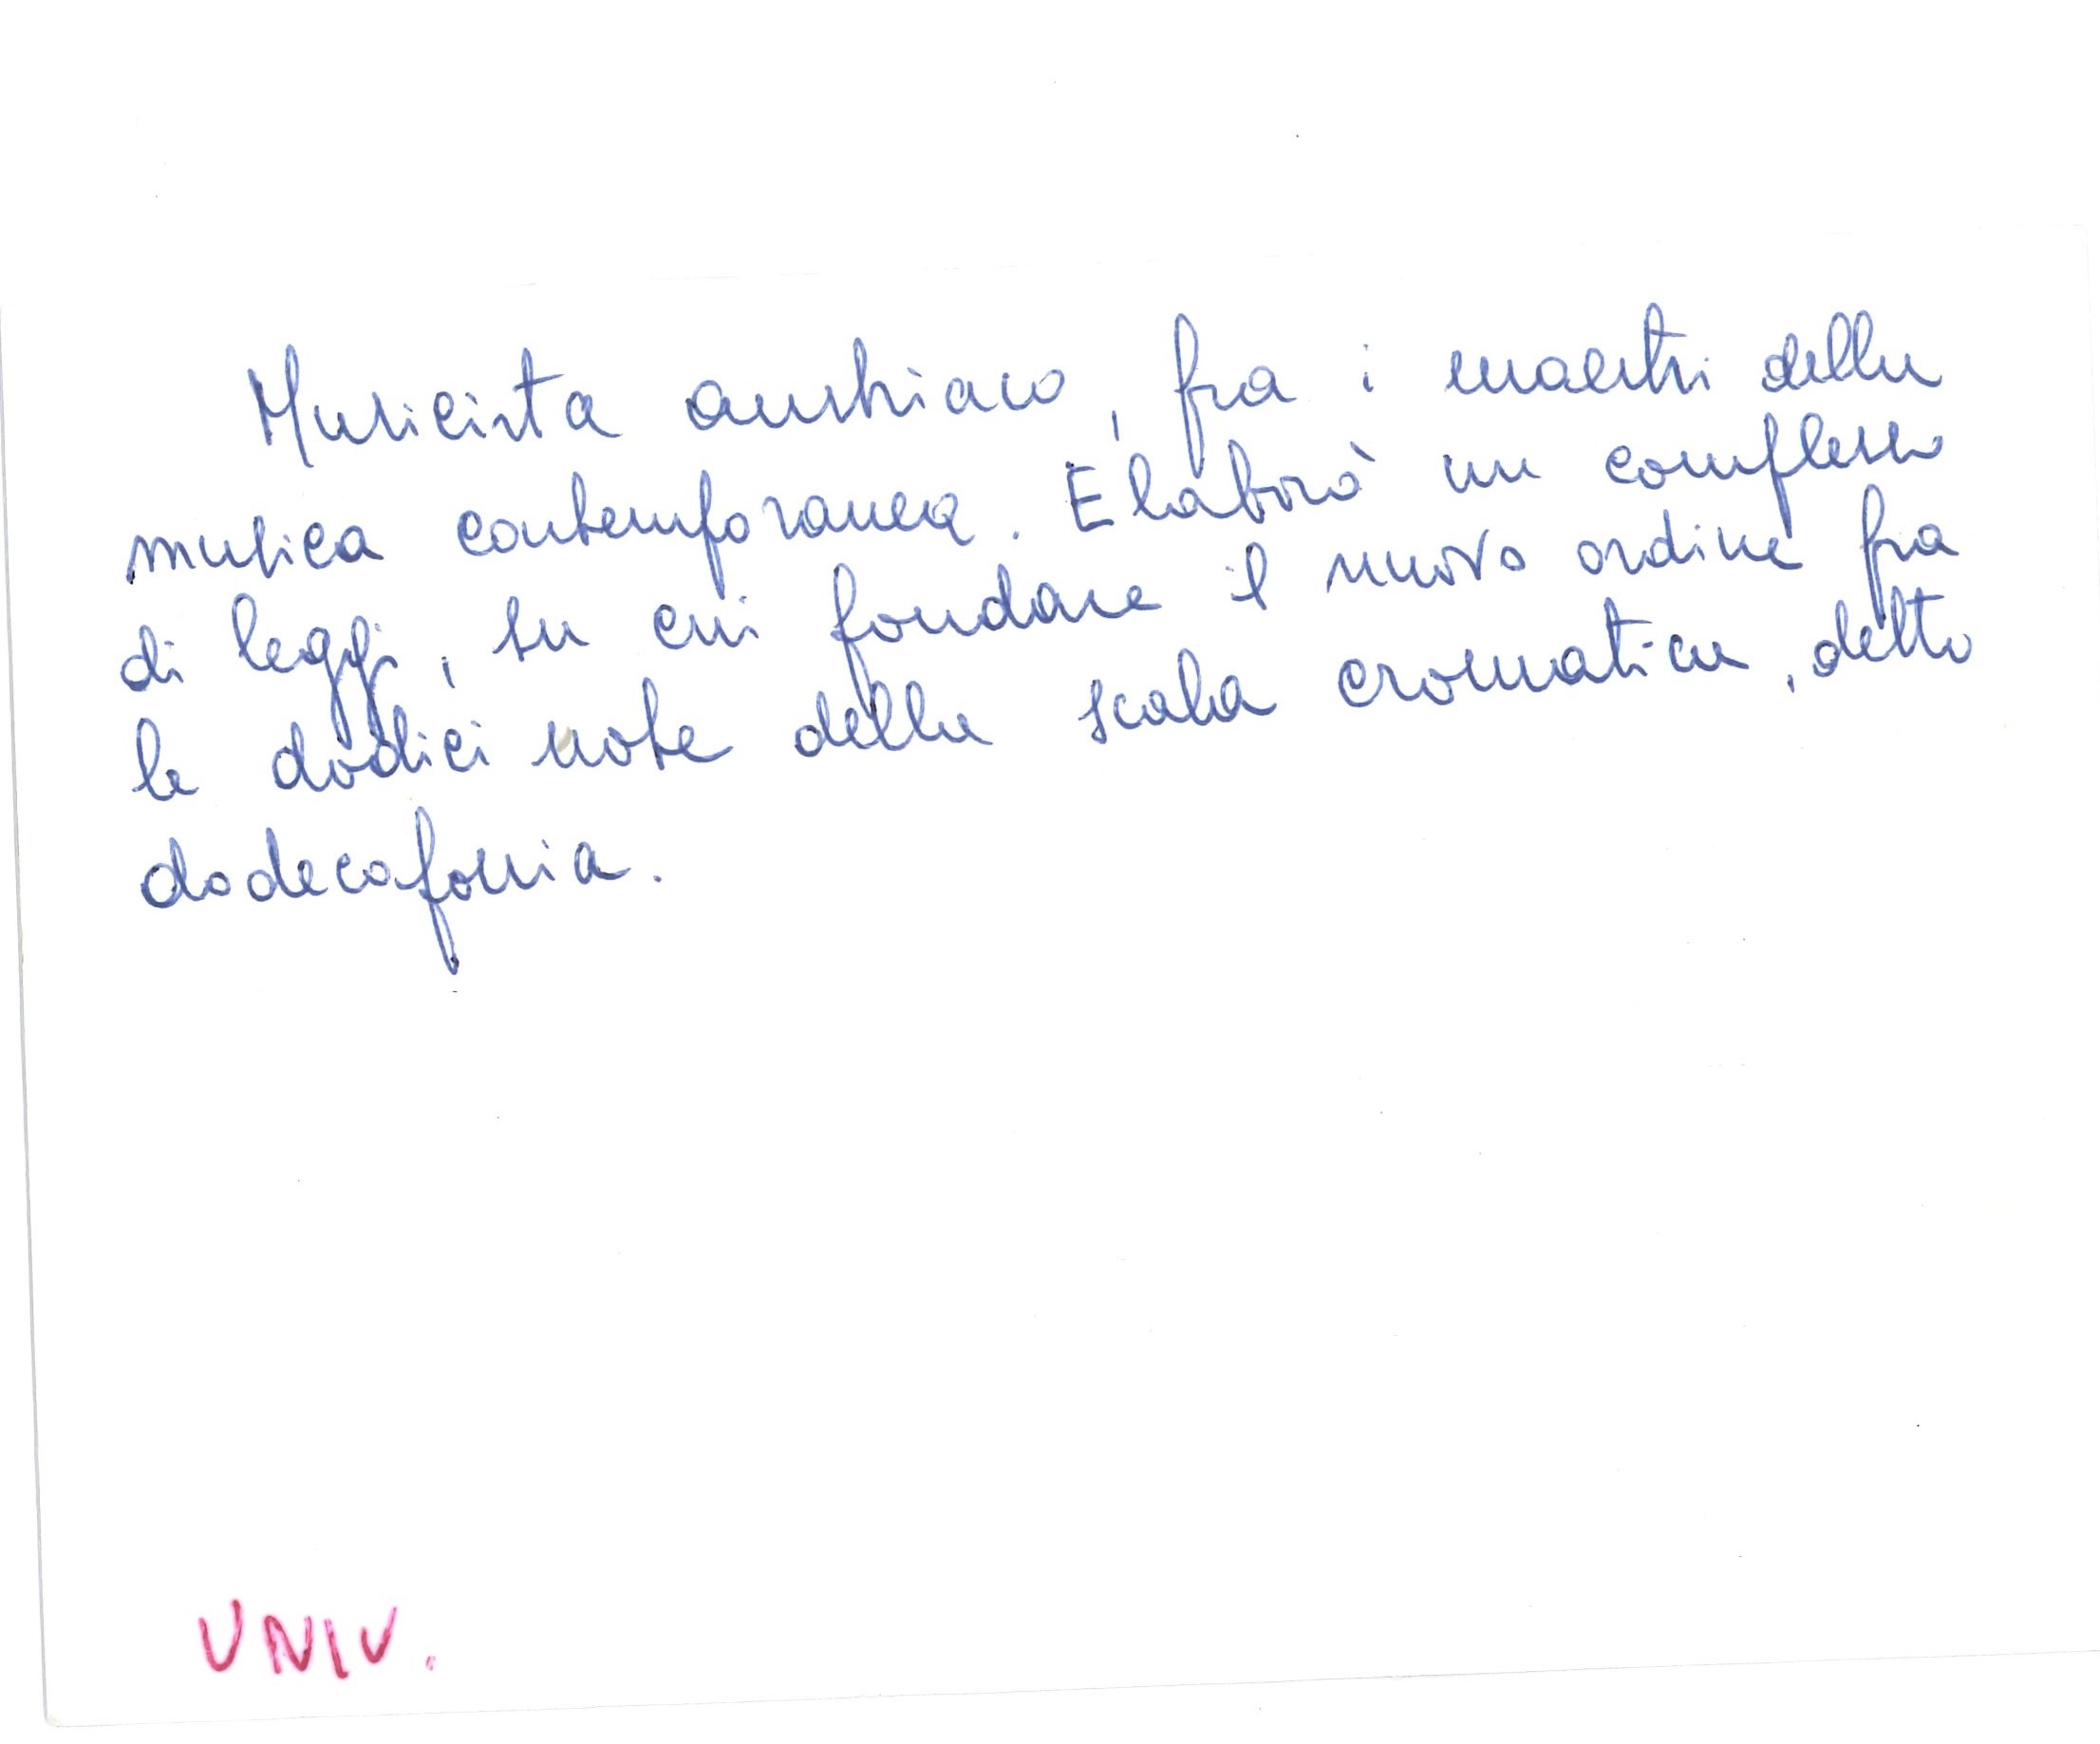 Musicista austriaco, fra i maestri della
musica contemporanea. Elaborò un complesso
di leggi, su cui fondare il nuovo ordine fra
le dodici note della scala cromatica, detto
dodecafonia.
UNIV.